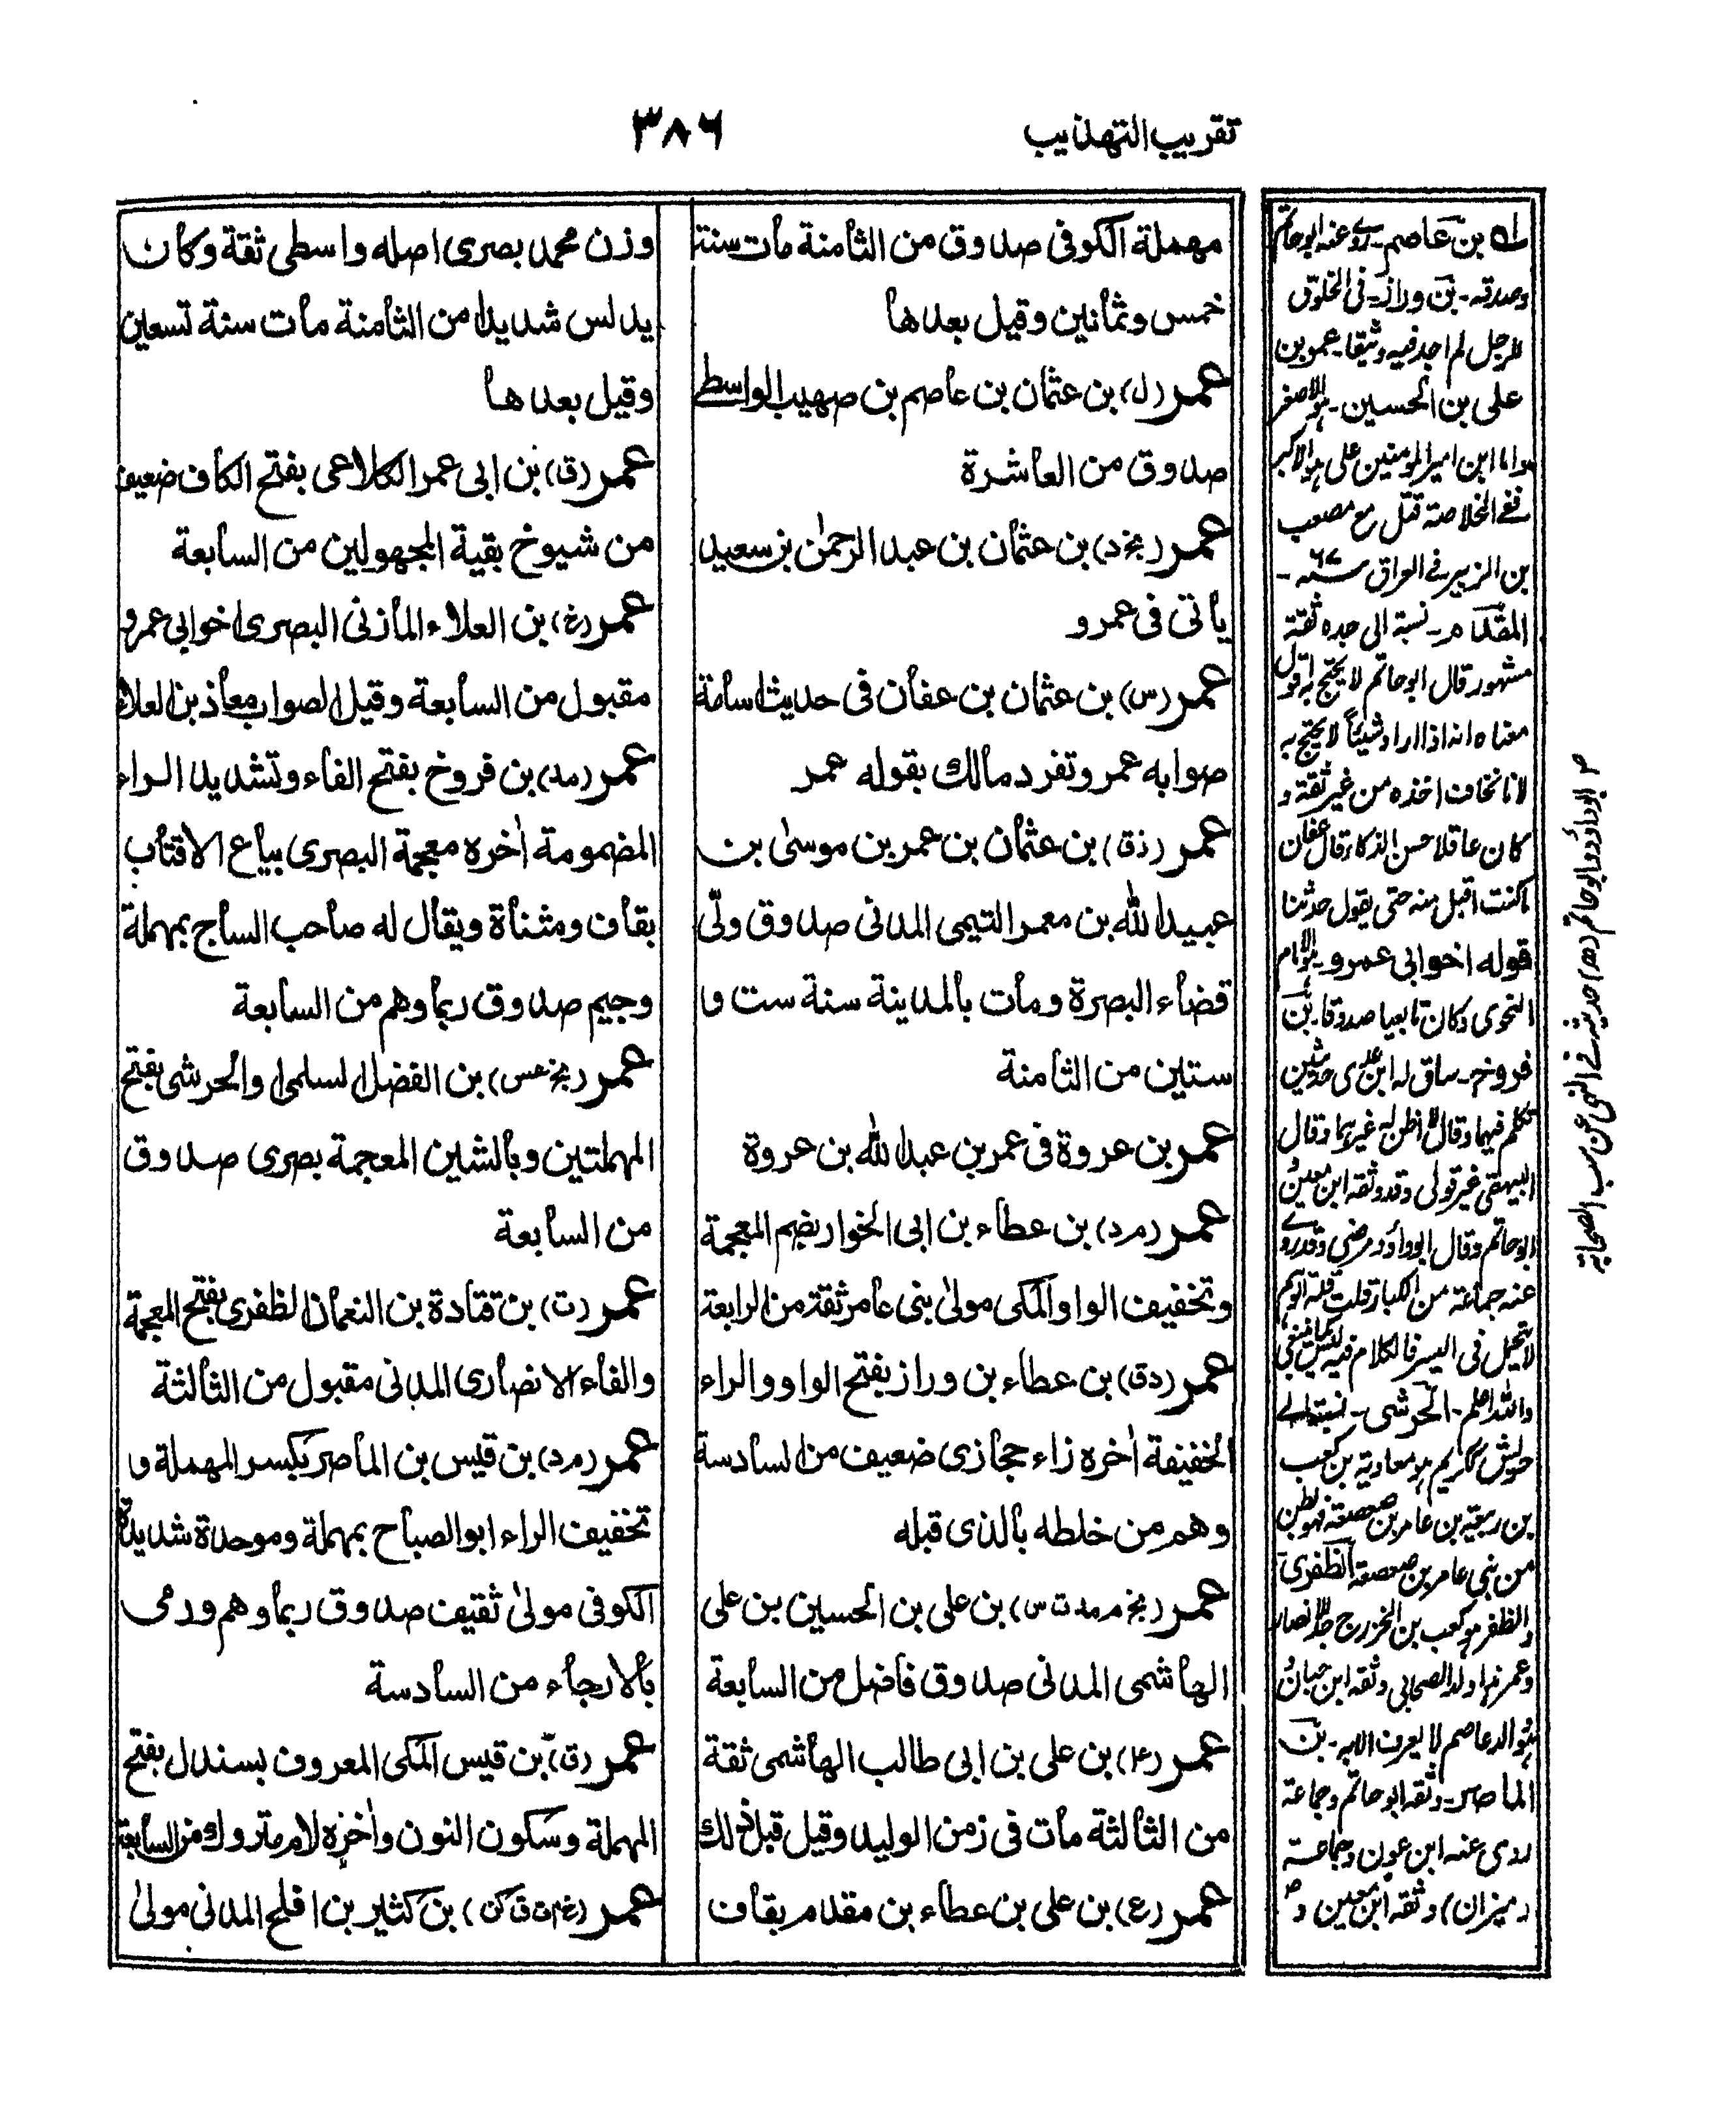 تقريب التهذيب
٣٨٦
مهملة الكوفى صدوق من الثامنة مات سنة
خمس وثمانين وقيل بعدها
عمر (ل) بن عثمان بن عاصم بن صهيب الواسطے
صدوق من العاشرة
عمر (بخ د) بن عثمان بن عبد الرحمٰن بن سعيد
يأتى فى عمرو
عمر (س) بن عثمان بن عفان فى حديث اسامة
صوابه عمرو تفرد مالك بقوله عمر
عمر (ذق) بن عثمان بن عمر بن موسىٰ بن
عبيد الله بن معمر التيمى المدنى صدوق ولّى
قضاء البصرة ومات بالمدينة سنة ست و
ستين من الثامنة
عمر بن عروة فى عمر بن عبد الله بن عروة
عمر (م د) بن عطاء بن ابى الخوار بضم المعجمة
وتخفيف الواو المكى مولىٰ بنى عامر ثقة من الرابعة
عمر (دق) بن عطاء بن وراز بفتح الواو والراء
الخفيفة اٰخره زاء حجازى ضعيف من السادسة
وهم من خلطه بالذى قبله
عمر (بخ م مد ت س) بن على بن الحسين بن على
الهاشمى المدنى صدوق فاضل من السابعة
عمر (عا) بن على بن ابى طالب الهاشمى ثقة
من الثالثة مات فى زمن الوليد وقيل قبل ذلك
عمر (ع) بن على بن عطاء بن مقدم بقاف
وزن محمد بصرى اصله واسطى ثقة وكان
يدلس شديدا من الثامنة مات سنة تسعين
وقيل بعدها
عمر (ق) بن ابى عمر الكلاعى بفتح الكاف ضعيف
من شيوخ بقية المجهولين من السابعة
عمر (غ) بن العلاء المازنى البصرى اخوابى عمرو
مقبول من السابعة وقيل الصواب معاذ بن العلاء
عمر (مد) بن فروخ بفتح الفاء وتشديد الراء
المضمومة اٰخره معجمة البصرى بياع الاقتاب
بقاف ومثناة ويقال له صاحب الساج بمهملة
وجيم صدوق ربما وهم من السابعة
عمر (بخ عس) بن الفضل السلمى او الحرشى بفتح
المهملتين وبالشين المعجمة بصرى صدوق
من السابعة
عمر (ت) بن قتادة بن النعمان الظفرى بفتح المعجمة
والفاء الانصارى المدنى مقبول من الثالثة
عمر (م د) بن قيس بن الماصر بكسر المهملة و
تخفيف الراء ابوالصباح بمهملة وموحدة شديدة
الكوفى مولىٰ ثقيف صدوق ربما وهم ورمى
بالارجاء من السادسة
عمر (ق) بن قيس المكى المعروف بسندل بفتح
المهملة وسكون النون واٰخره لام متروك من السابعة
عمر بن كثير بن افلح المدنى مولىٰ
بن عاصم۔ روى عنه ابوحاتم
وصدقه۔ بن وراز۔ فى الخلوق
للرجل لم اجد فيه وثيقا۔ عمر بن
على بن الحسين۔ هو الاصغر
واما ابن امير المومنين على هو الاكبر
ففے الخلاصة قتل مع مصعب
بن الزبير فے العراق سنه ٦٧۔
المقدام۔ نسبة الى جده ثقة
مشهور قال ابوحاتم لا يحتج به اقول
معناه انه اذا اراد شيئاً لا يحتج به
لانا نخاف اخذه من غير ثقة و
كان عاقلا حسن الذكاء قال عفان
ماكنت اقبل منه حتى يقول حدثنا
قوله اخوابى عمرو۔ هو الامام
النحوى وكان تابعيا صدوقا۔ بن
فروخ۔ ساق له ابن عدى حديثين
تكلم فيهما وقال لا اظن له غيرهما وقال
البيهقى غير قوى وقد وثقه ابن معين و
ابوحاتم وقال ابوداؤد مرضى وقد روے
عنه جماعة من الكبار قلت قلة الوهم
لا تخل فى اليسر فالكلام فيه ليس كما ينبغى
والله اعلم۔ الحرشى۔ نسبة الے
حريش ككريم هو معاوية بن كعب
بن ربيعة بن عامر بن صعصعة فهو بطن
من بنى عامر بن صعصعة الظفرى
والظفر هو كعب بن الخزرج جد الانصار
وعمر هذا ولد الصحابى وثقه ابن حبان و
هو والد عاصم لا يعرف الا به۔ بن
الماصر۔ وثقه ابوحاتم وجماعة
روى عنه ابن عون وجماعة
(ميزان) وثقه ابن معين و ص
ص ابوداؤد وابوحاتم حديثه فے النهى عن سب الصحابة